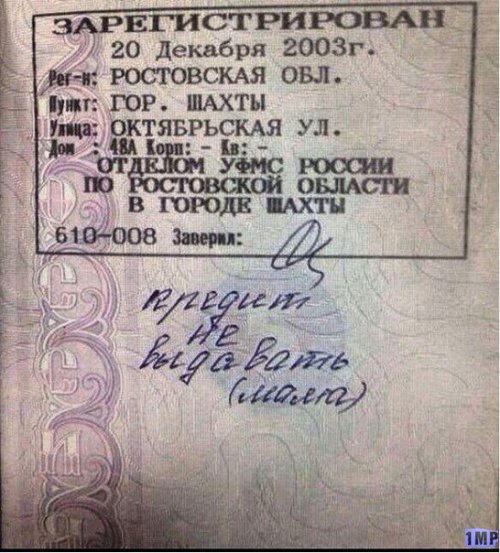 ЗАРЕГИСТРИРОВАН
20 Декабря 2003г.
Рег-н: РОСТОВСКАЯ ОБЛ.
Пункт: ГОР. ШАХТЫ
Улица: ОКТЯБРЬСКАЯ УЛ.
Дом : 48А Корп: - Кв: -
ОТДЕЛОМ УФМС РОССИИ
ПО РОСТОВСКОЙ ОБЛАСТИ
В ГОРОДЕ ШАХТЫ
610-008 Заверил:
кредит
НЕ
выдавать
(мама)
1MP